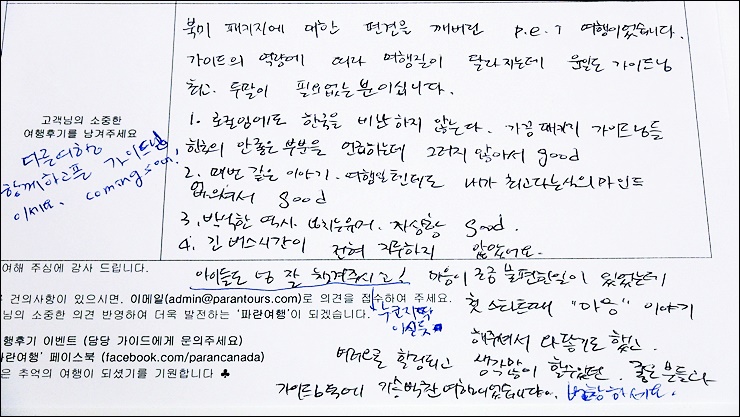 북미 패키지에 대한 편견을 깨버린 P.E.I 여행이었습니다.
가이드의 역량에 따라 여행질이 달라지는데 윤일도 가이드님
최고. 두말이 필요없는 분이십니다.
고객님의 소중한
여행후기를 남겨주세요
다른여행
함께하고픈 가이드님
이세요. coming soon!
1. 로컬임에도 한국을 비난하지 않는다. 가끔 패키지 가이드님들
한국의 안좋은 부분을 언급하는데 그러지 않아서 good
2. 매번 같은 이야기. 여행일텐데도 내가 최고다는식의 마인드
없으셔서 good
3. 박식한 역사. 유머. 자상함 good.
4. 긴 버스시간이 전혀 지루하지 않았어요.
여해 주심에 감사 드립니다.
아이들도 넘 잘 챙겨주시고! 마음이 조금 불편한일이 있었는데
건의사항이 있으시면, 이메일(admin@parantours.com)로 의견을 접수하여 주세요.
첫 스타트때 "마음" 이야기
님의 소중한 의견 반영하여 더욱 발전하는 '파란여행'이 되겠습니다.
해주셔서 와닿기도 했고.
후기 이벤트 (담당 가이드에게 문의주세요)
란여행' 페이스북 (facebook.com/parancanada)
힐링되고 생각많이 할수있던. 좋은 분들과
은 추억의 여행이 되셨기를 기원합니다 ♣
가이드님덕에 여행이었습니다.